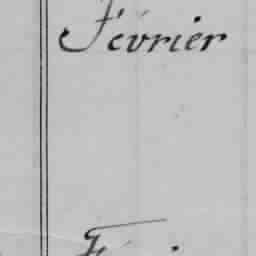 Février